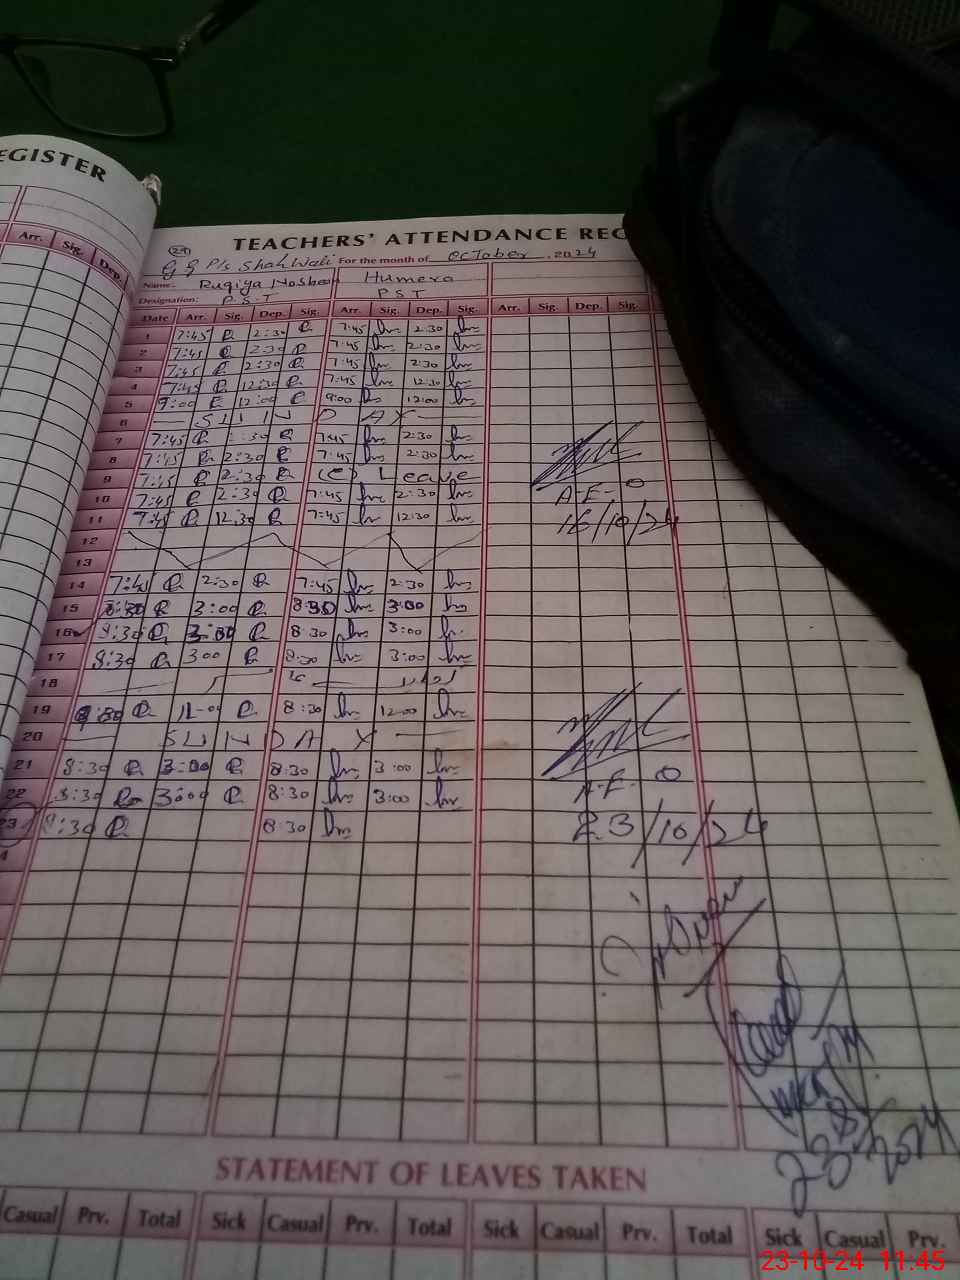 EGISTER
Arr. Sig. Dep.
TEACHERS' ATTENDANCE REC
29
G G P/s Shah Wali For the month of October , 2024
Name: Ruqiya Humera
Designation: P.S.T PST
Date Arr. Sig. Dep. Sig. Arr. Sig. Dep. Sig. Arr. Sig. Dep. Sig.
1 7:45 2:30 7:45 2:30
2 7:45 2:30 7:45 2:30
3 7:45 2:30 7:45 2:30
4 7:45 12:30 7:45 12:30
5 9:00 12:00 9:00 12:00
6 — S U N D A Y
7 7:45 :30 7:45 2:30
8 7:45 2:30 7:45 2:30
9 7:45 2:30 (C) Leave
10 7:45 2:30 7:45 2:30
11 7:45 12:30 7:45 12:30
A-E-O
16/10/24
12
13
14 7:45 2:30 7:45 2:30
15 8:30 3:00 8:30 3:00
16 8:30 3:00 8:30 3:00
17 8:30 300 8:30 3:00
18
19 8:30 8:30 12:00
20 — S U N D A Y —
21 8:30 3:00 8:30 3:00
22 8:30 3:00 8:30 3:00
A-E-O
23 8:30 8:30
23/10/24
4
2024
STATEMENT OF LEAVES TAKEN
Casual Prv. Total Sick Casual Prv. Total Sick Casual Prv. Total Sick Casual Prv.
23-10-24 11:45